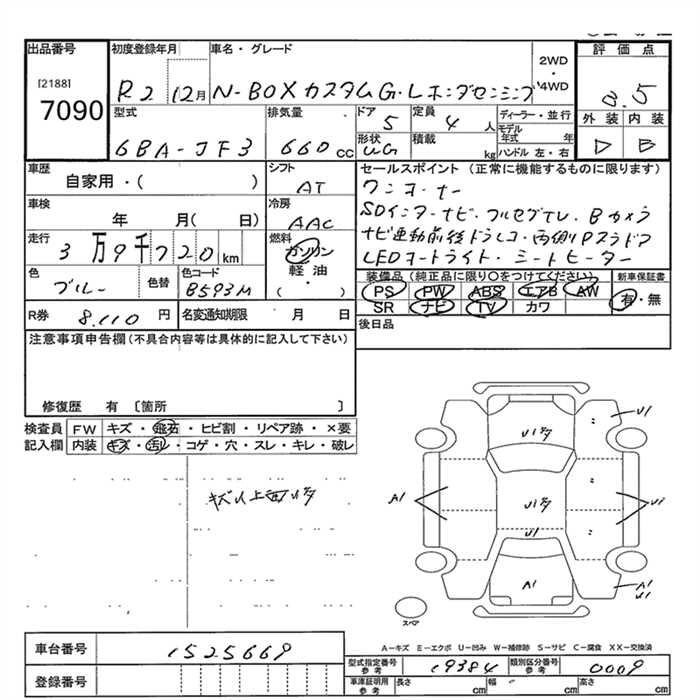 出品番号
[2188]
7090
初度登録年月
R2 12月
車名・グレード
N-BOXカスタムG・Lホンダセンシング
2WD
・
4WD
評価点
3.5
外装 内装
D B
型式
6BA-JF3
排気量
660 cc
ドア
5
定員
4 人
形状
UG
積載
kg
ディーラー・並行
モデル年式 年
ハンドル 左・右
車歴
自家用・( )
シフト
AT
車検
年 月( 日)
冷房
AAC
走行
3万9千720km
燃料
ガソリン
軽油
( ・ )
色
ブルー
色替
色コード
B593M
R券
8.110 円
名変通知期限
月 日
セールスポイント(正常に機能するものに限ります)
ワンオーナー
SDインターナビ・フルセグTV・Bカメラ
ナビ連動前後ドラレコ・両側Pスラドア
LEDオートライト・シートヒーター
装備品(純正品に限り○をつけてください)
PS PW ABS エアB AW
SR ナビ TV カワ
新車保証書
有・無
後日品
注意事項申告欄(不具合内容等は具体的に記入して下さい)
修復歴 有 〔箇所 〕
検査員記入欄
FW キズ・飛石・ヒビ割・リペア跡・×要
内装 キズ・汚レ・コゲ・穴・スレ・キレ・破レ
U1
A1
U1
A1
A1
U1
スペア
A-キズ E-エクボ U-凹み W-補修跡 S-サビ C-腐食 XX-交換済
車台番号
1525669
登録番号
型式指定番号
参考
19384
類別区分番号
参考
0009
車庫証明用
参考
長さ cm
幅 cm
高さ cm